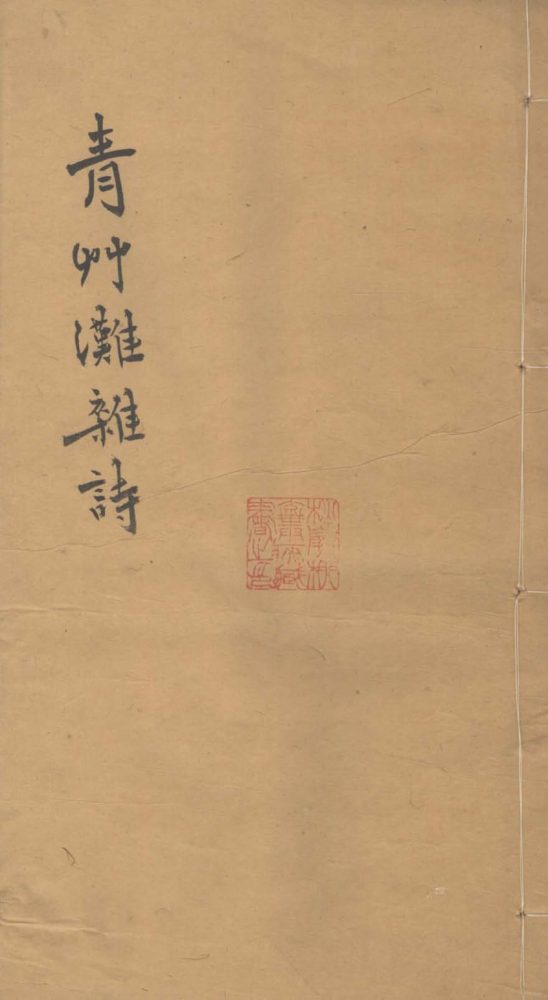 青艸灘雜詩